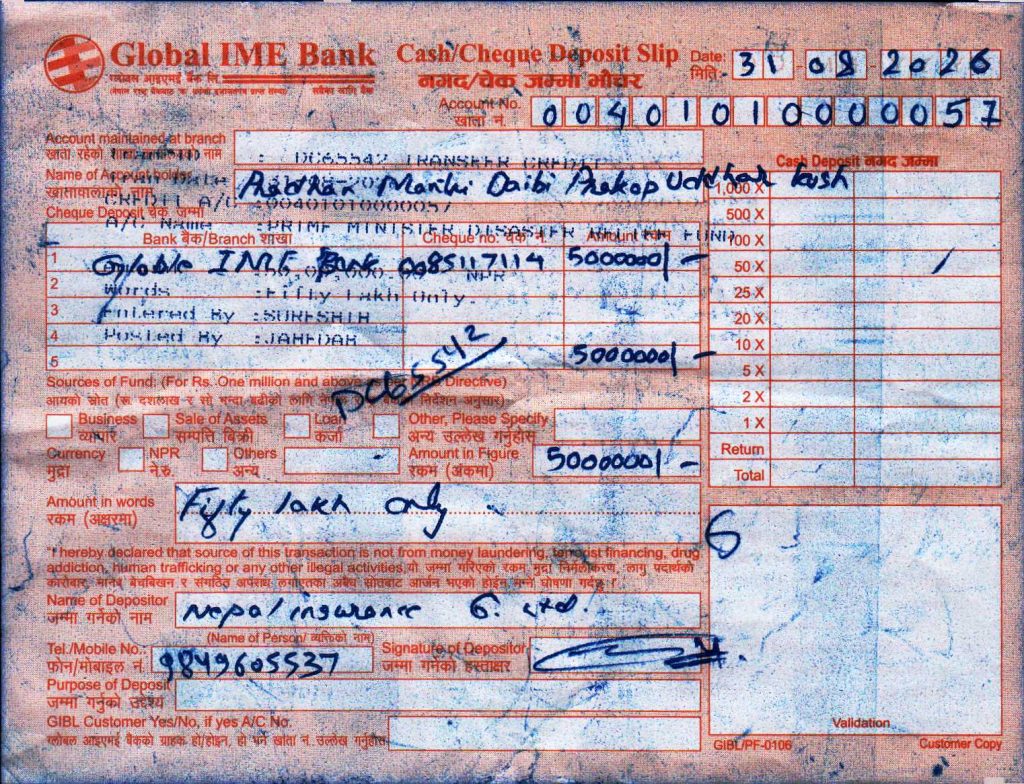 Global IME Bank
ग्लोबल आइएमई बैंक लि.
Cash/Cheque Deposit Slip
नगद/चेक जम्मा भौचर
Date: 31-08-2026
मिति
Account No. 00401010000057
खाता नं.
Account maintained at branch
खाता रहेको नाम
: DC65542 TRANSFER CREDIT
Name of Account holder Pradhan Mantri Daibi Prakop Uddhar Kosh
खातावालाको नाम
CREDIT A/C :00401010000057
Cheque Deposit चेक जम्मा
A/C Name :PRIME MINISTER DISASTER RELIEF FUND
Bank बैंक/Branch शाखा Cheque no. चेक नं. Amount रकम
1 Globle IME Bank 0085117114 5000000/-
NPR
2
Words :Fifty Lakh Only.
3
Entered By :SURESHTH
4
Posted By
5 5000000/-
DC65542
Cash Deposit नगद जम्मा
1,000 X
500 X
100 X
50 X
25 X
20 X
10 X
5 X
2 X
1 X
Return
Total
Sources of Fund: (For Rs. One million and above Directive)
आयको स्रोत (रू. दशलाख र सो भन्दा बढीको लागि निर्देशन अनुसार)
Business Sale of Assets Loan Other, Please Specify
व्यापार सम्पत्ति बिक्री कर्जा अन्य उल्लेख गर्नुहोस्
Currency NPR Others Amount in Figure 5000000/-
मुद्रा ने.रु. अन्य रकम (अंकमा)
Amount in words Fifty lakh only
रकम (अक्षरमा)
I hereby declared that source of this transaction is not from money laundering, terrorist financing, drug
addiction, human trafficking or any other illegal activities. यो जम्मा गरिएको रकम मुद्रा निर्मलीकरण, लागु पदार्थको
कारोबार, मानव बेचबिखन र संगठित अपराध लगायतका अवैध स्रोतबाट आर्जन भएको होईन भन्ने घोषणा गर्दछु ।
Name of Depositor Nepal insurance Co. Ltd.
जम्मा गर्नेको नाम
(Name of Person/ व्यक्तिको नाम)
Tel./Mobile No.: 9849605537 Signature of Depositor
फोन/मोबाइल नं. जम्मा गर्नेको हस्ताक्षर
Purpose of Deposit
जम्मा गर्नुको उद्देश्य
GIBL Customer Yes/No, if yes A/C No.
ग्लोबल आइएमई बैंकको ग्राहक हो/होइन, हो भने खाता नं. उल्लेख गर्नुहोस्
Validation
GIBL/PF-0106 Customer Copy